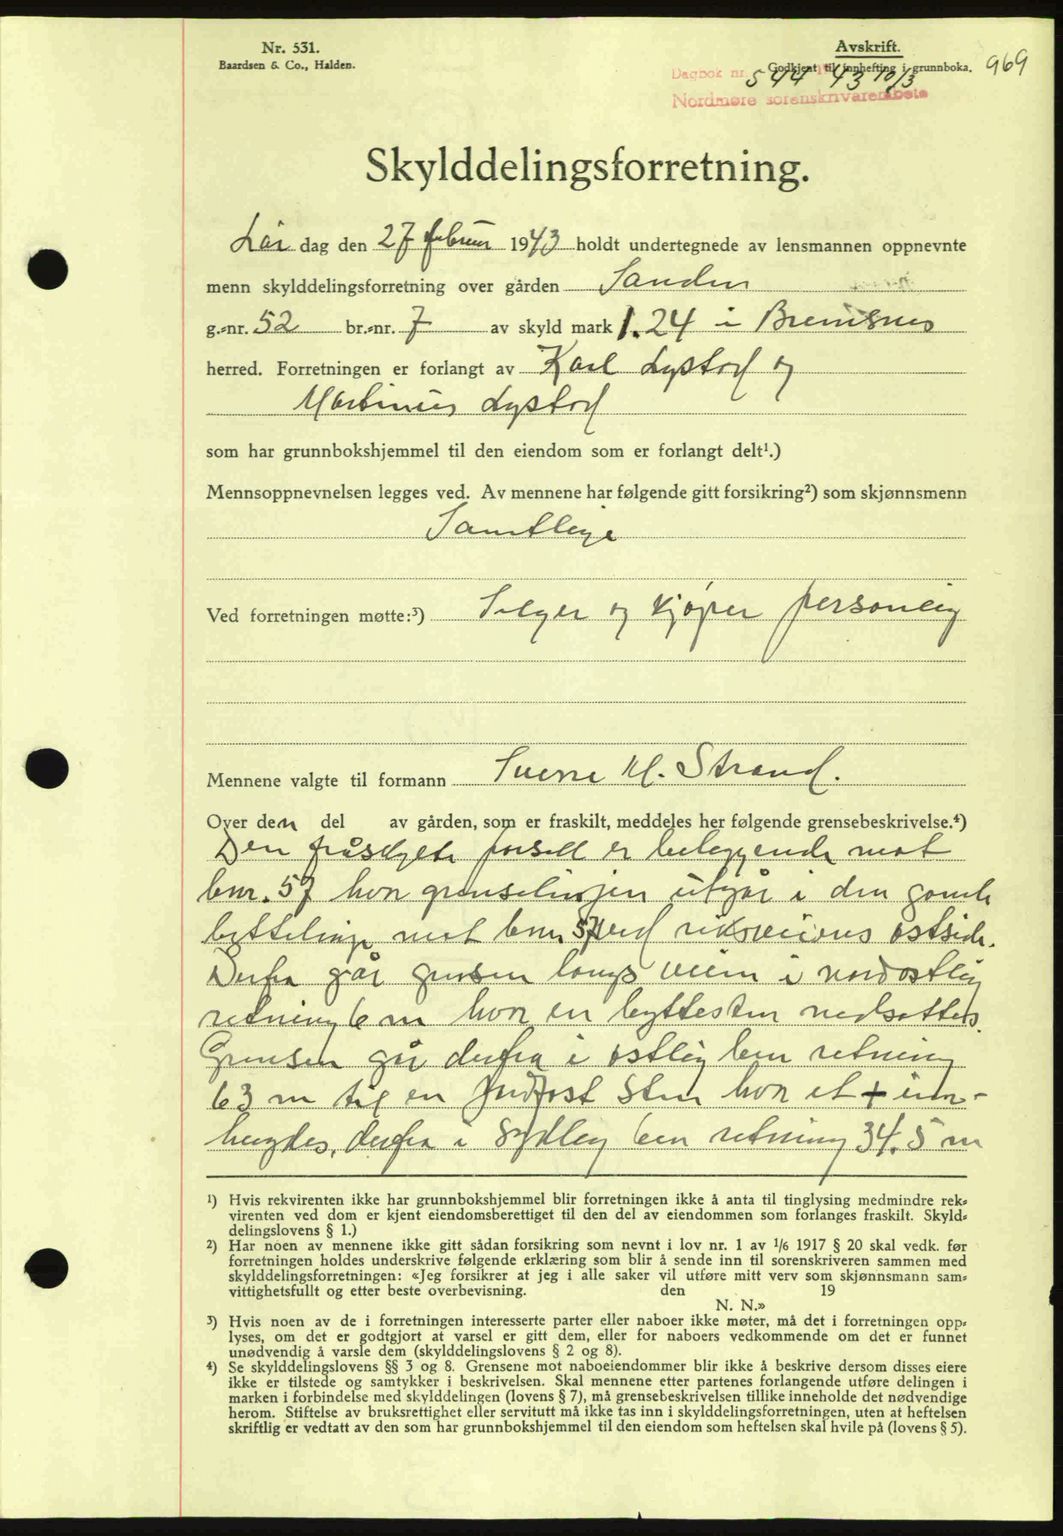 Nr. 531.
Baardsen & Co., Halden.
Avskrift.
Godkjent til innhefting i grunnboka.
969
Dagbok nr. 544 1943 10/3
Nordmøre sorenskrivarembete
Skylddelingsforretning.
Lør dag den 27 februar 1943 holdt undertegnede av lensmannen oppnevnte
menn skylddelingsforretning over gården Sanden
g.-nr. 52 br.-nr. 7 av skyld mark 1.24 i Bremsnes
herred. Forretningen er forlangt av Karl Lystad og
Martinus Lystad
som har grunnbokshjemmel til den eiendom som er forlangt delt¹.)
Mennsoppnevnelsen legges ved. Av mennene har følgende gitt forsikring²) som skjønnsmenn
Samtlige
Ved forretningen møtte:³) Selger og kjøper personlig
Mennene valgte til formann Sverre M. Strand.
Over den del av gården, som er fraskilt, meddeles her følgende grensebeskrivelse.⁴)
Den fraskylte parsell er beliggende mot
bnr. 57 hvor grenselinjen utgår i den gamle
byttelinje mot bnr 57 ved riksveiens østside.
Derfra går grensen langs veien i nordøstlig
retning 6 m hvor en byttesten nedsattes.
Grensen går derfra i østlig ben retning
63 m til en jordfast sten hvor et + inn-
hugdes, derfra i sydlig ben retning 34.5 m
¹) Hvis rekvirenten ikke har grunnbokshjemmel blir forretningen ikke å anta til tinglysing medmindre rek-
virenten ved dom er kjent eiendomsberettiget til den del av eiendommen som forlanges fraskilt. Skyld-
delingslovens § 1.)
²) Har noen av mennene ikke gitt sådan forsikring som nevnt i lov nr. 1 av 1/6 1917 § 20 skal vedk. før
forretningen holdes underskrive følgende erklæring som blir å sende inn til sorenskriveren sammen med
skylddelingsforretningen: «Jeg forsikrer at jeg i alle saker vil utføre mitt verv som skjønnsmann sam-
vittighetsfullt og etter beste overbevisning. den 19
N. N.»
³) Hvis noen av de i forretningen interesserte parter eller naboer ikke møter, må det i forretningen opp-
lyses, om det er godtgjort at varsel er gitt dem, eller for naboers vedkommende om det er funnet
unødvendig å varsle dem (skylddelingslovens § 2 og 8).
⁴) Se skylddelingslovens §§ 3 og 8. Grensene mot naboeiendommer blir ikke å beskrive dersom disses eiere
ikke er tilstede og samtykker i beskrivelsen. Skal mennene etter partenes forlangende utføre delingen i
marken i forbindelse med skylddelingen (lovens § 7), må grensebeskrivelsen tillike inneholde det nødvendige
herom. Stiftelse av bruksrettighet eller servitutt må ikke tas inn i skylddelingsforretningen, uten at heftelsen
skriftlig er vedtatt av den som har grunnbokshjemmel til den eiendom som heftelsen skal hvile på (lovens § 5).